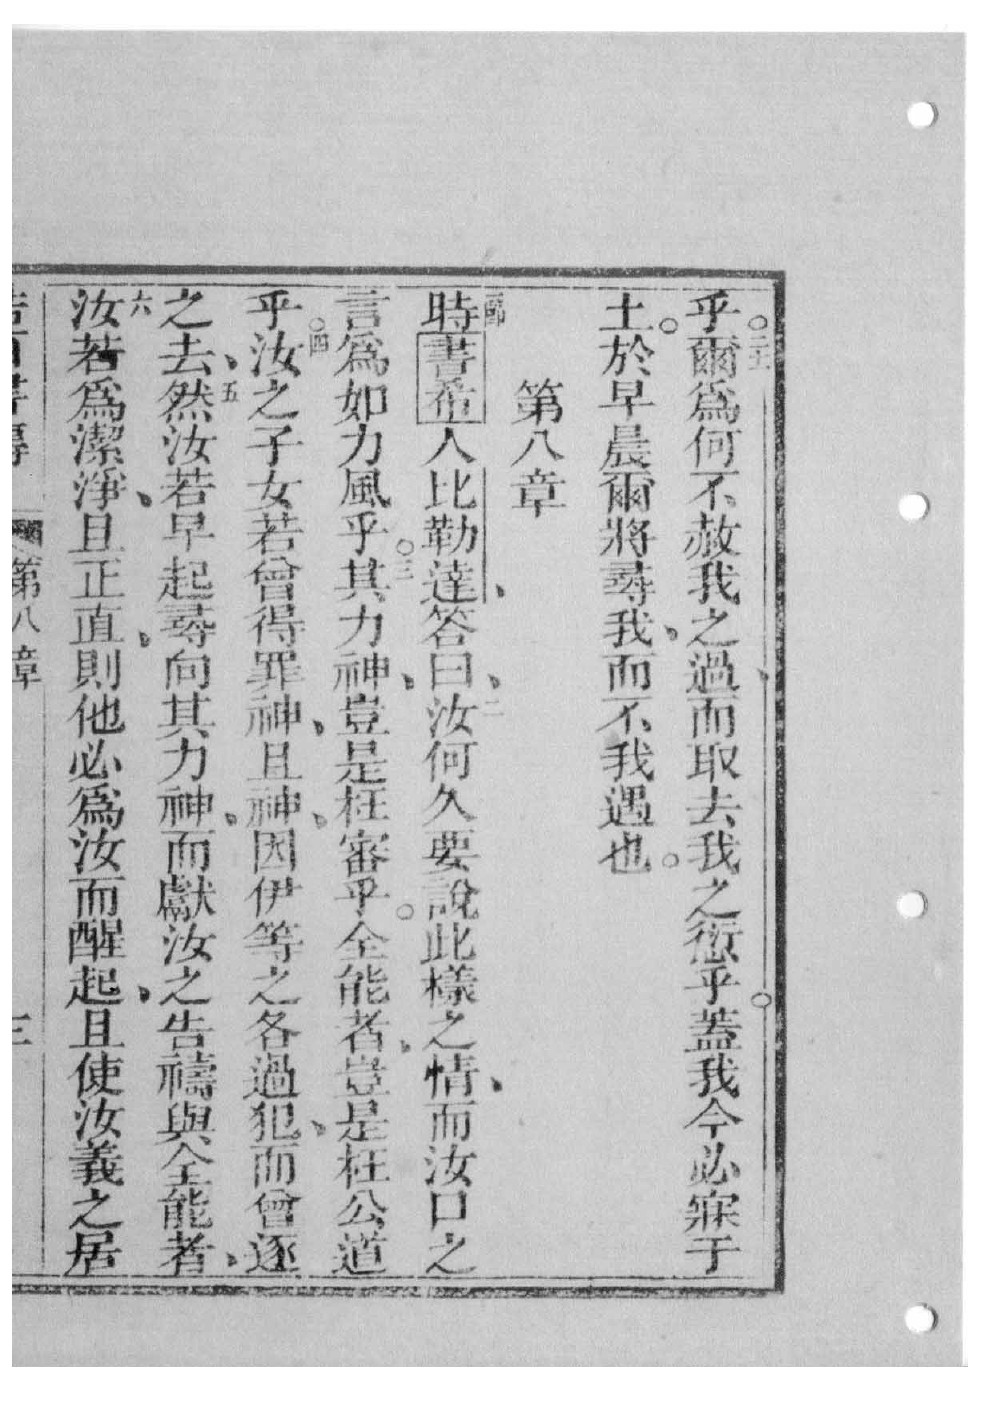 乎。二十一爾爲何不赦我之過、而取去我之愆乎。蓋我今必寐于
土。於早晨爾將尋我、而不我遇也。
第八章
一節時書希人比勒達、答曰、二汝何久要說此樣之情、而汝口之
言爲如力風乎。三其力神、豈是枉審乎。全能者、豈是枉公道
乎。四汝之子女若曾得罪神、且神、因伊等之各過犯、而曾逐
之去、五然汝若早起尋向其力神、而獻汝之告禱與全能者、
六汝若爲潔淨、且正直、則他必爲汝而醒起、且使汝義之居
第八章
三